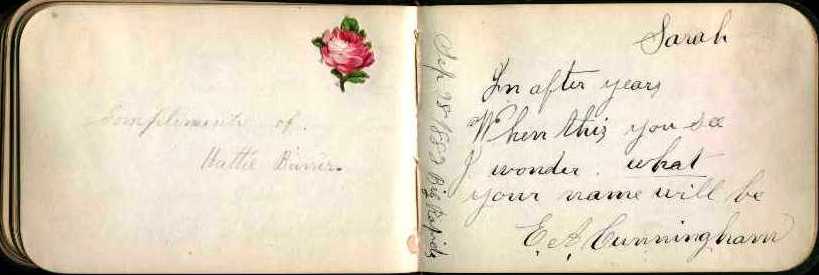 Compliments of
Hattie
Sarah
In after years
When this you see
I wonder what
your name will be
E. A. Cunningham
Sep 28 Big Rapids